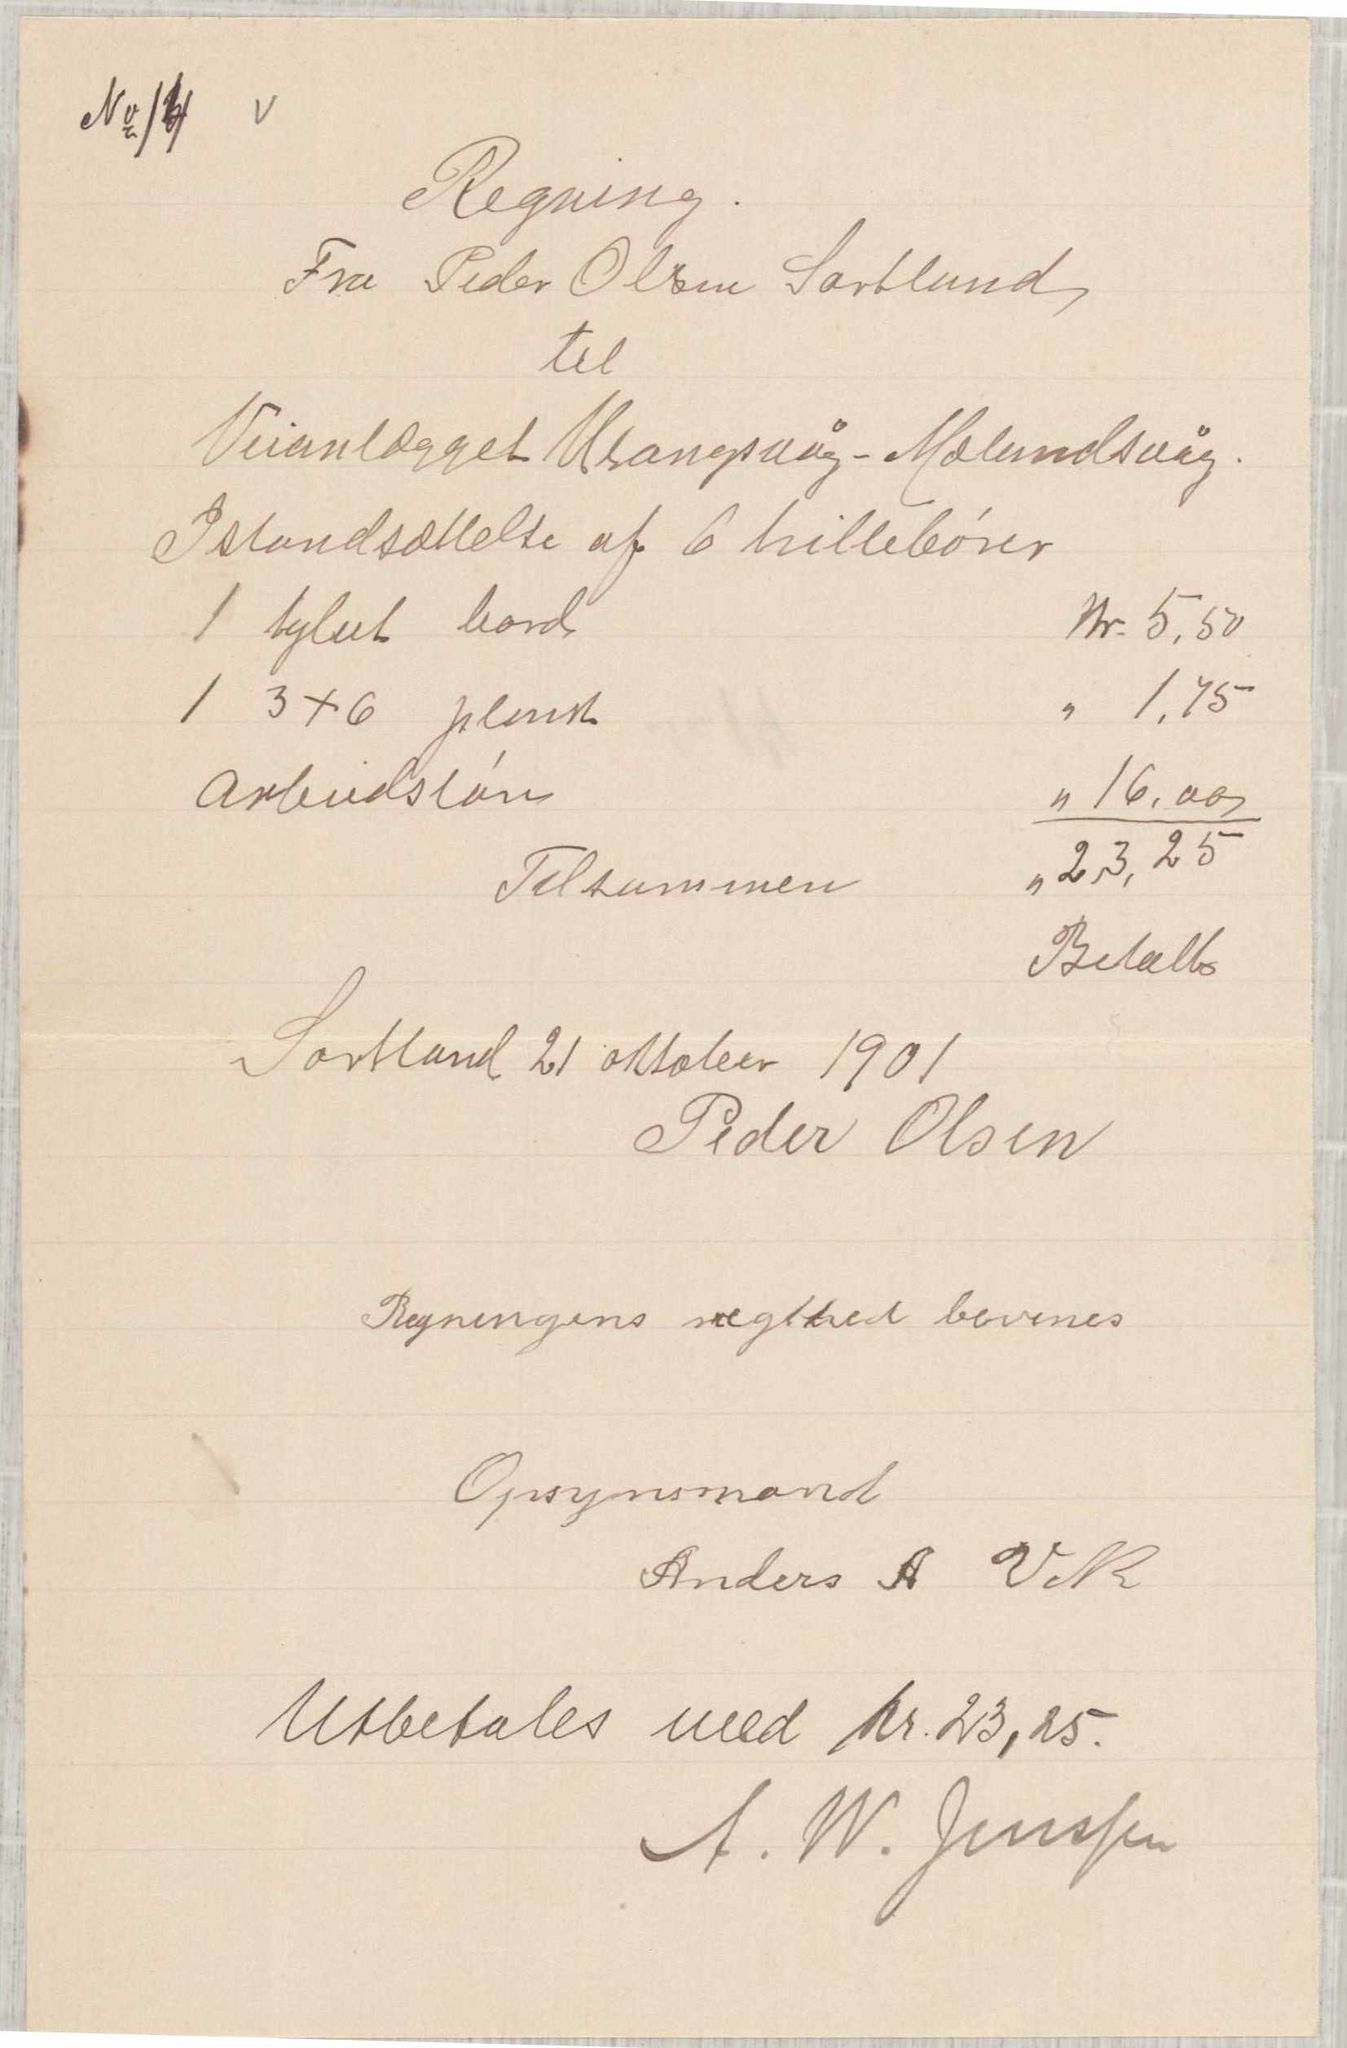 No 14 v
Regning.
Fra Peder Olsen Sortland
til
Veianlægget Urangsvåg-Mælandsvåg.
Istandsættelse af 6 trillebórer
1 tylvt bord Kr. 5,50
1 3+6 plank " 1,75
Arbeidslón " 16,00
Tilsammen " 23,25
Betalt
Sortland 21 oktober 1901
Peder Olsen
Regningens regthed bevines
Opsynsmand
Anders A Vik
Utbetales med kr. 23,25.
A. W. Jenssen